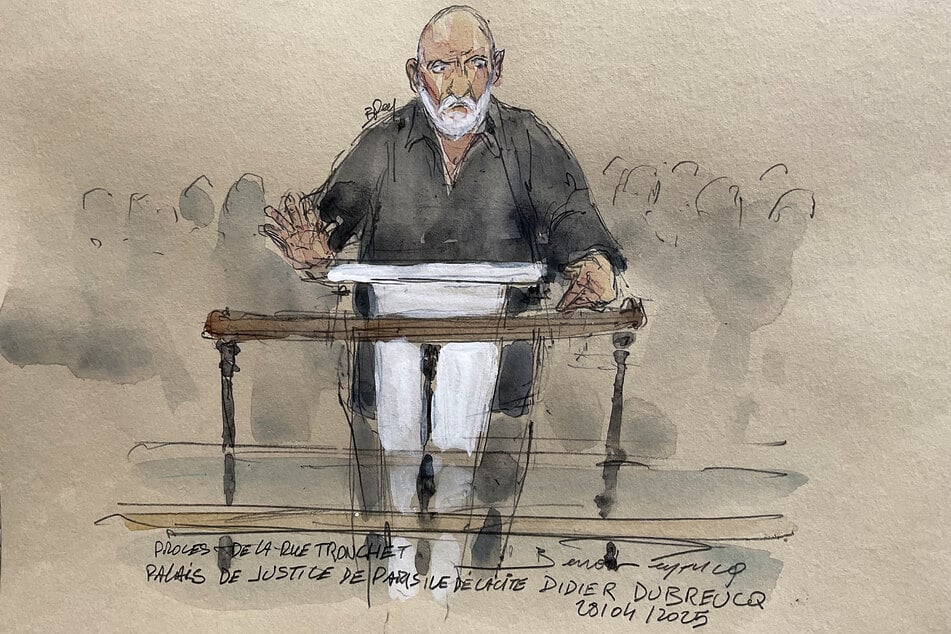 PROCES DE LA RUE TRONCHET
PALAIS DE JUSTICE DE PARIS ILE DE LA CITE DIDIER DUBREUCQ
28/04/2025